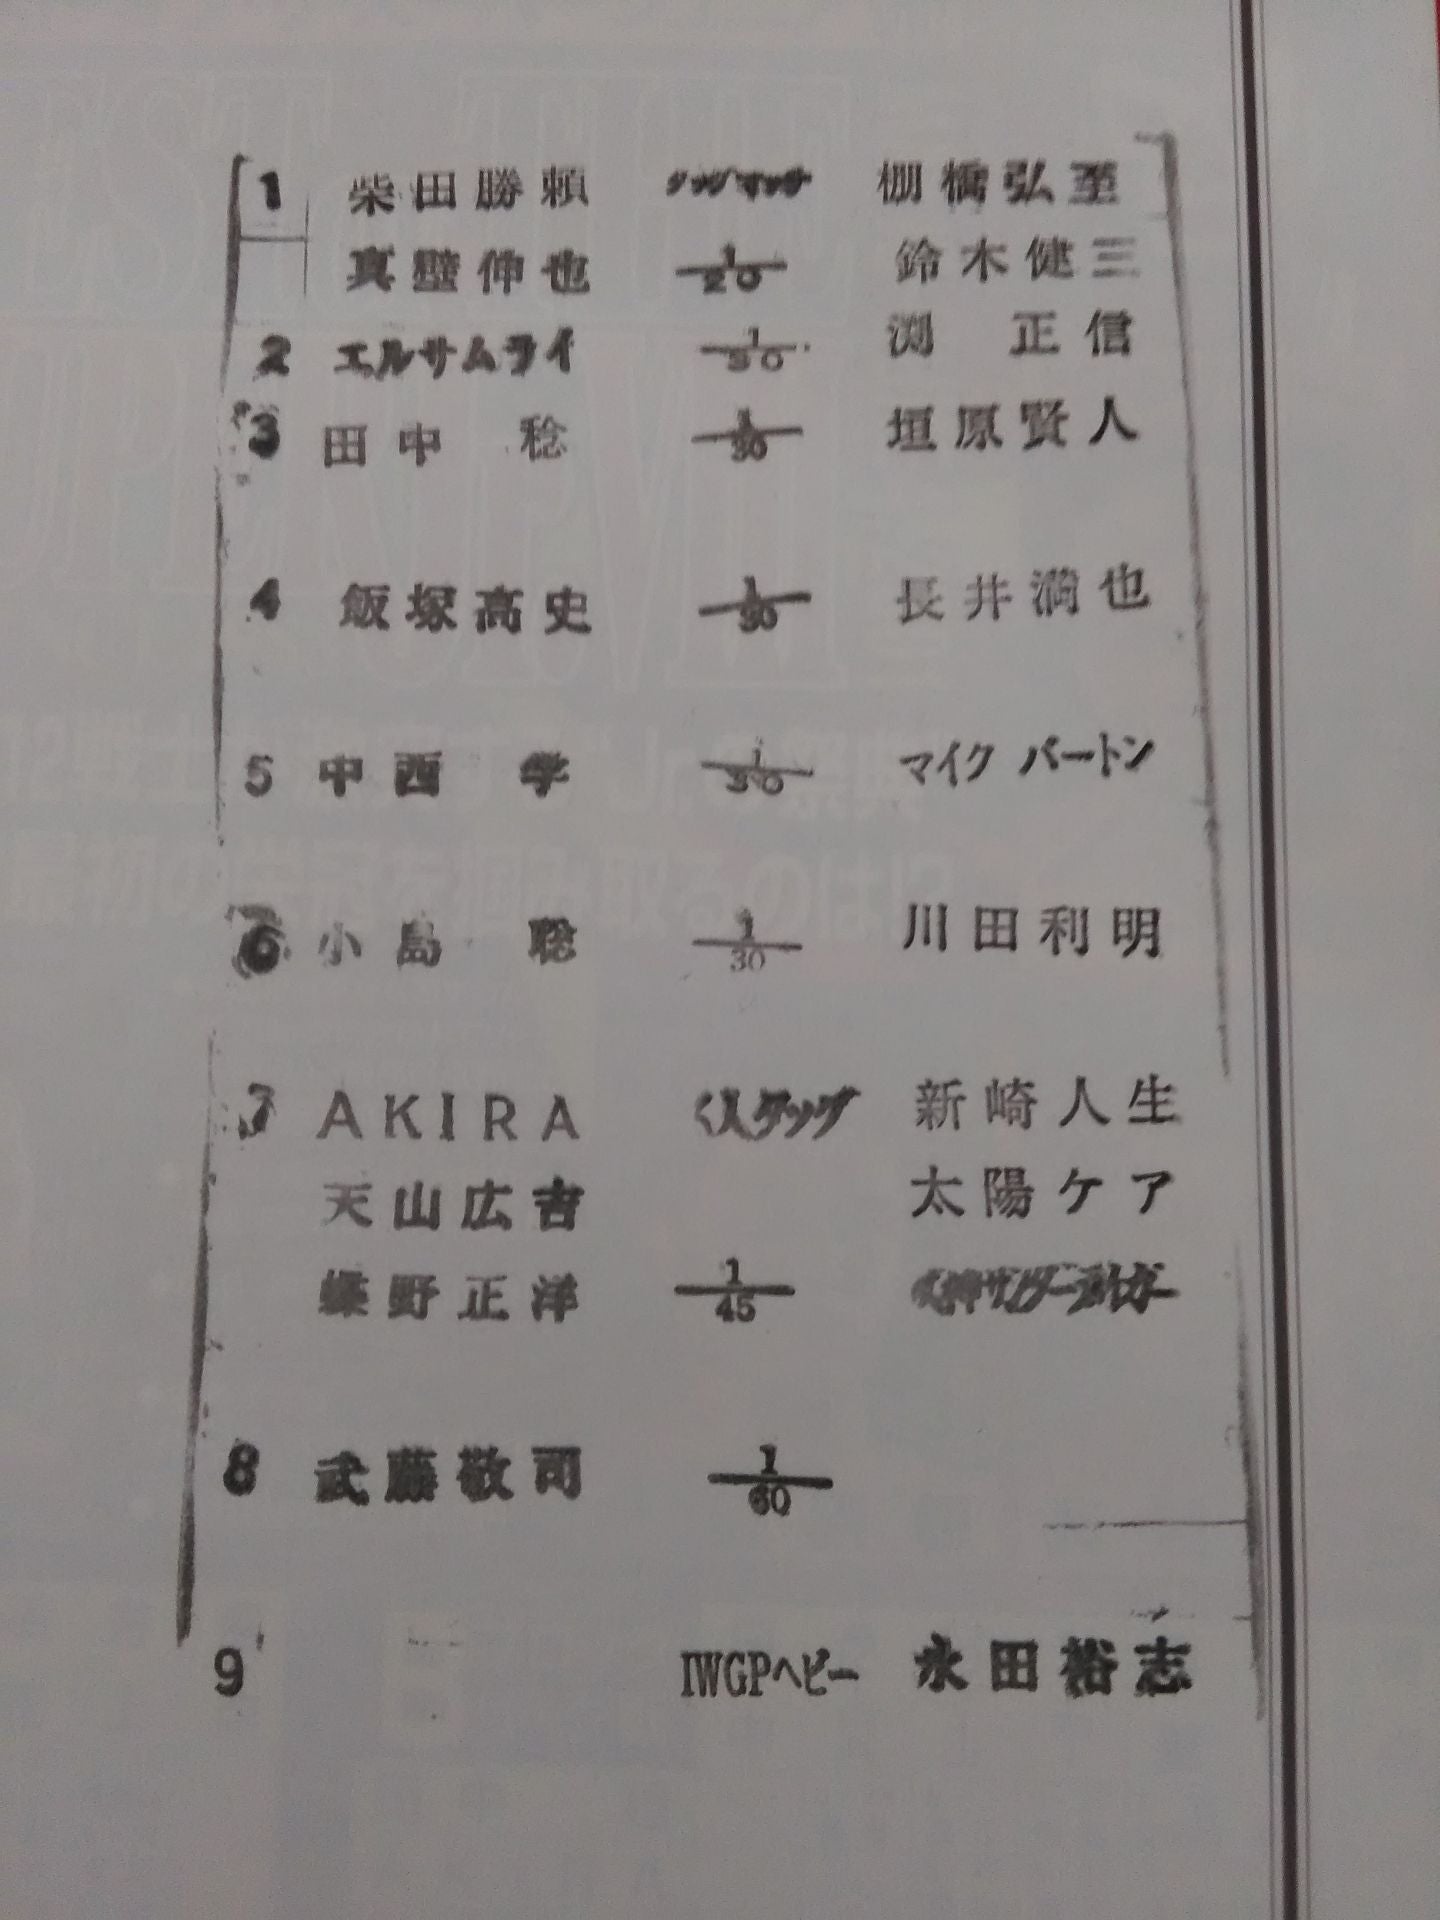 1 柴田勝頼 タッグマッチ 棚橋弘至
真壁伸也 1/20 鈴木健三
2 エルサムライ 1/30 渕 正信
3 田中 稔 1/30 垣原賢人
4 飯塚高史 1/30 長井満也
5 中西 学 1/30 マイク バートン
6 小島 聡 1/30 川田利明
7 AKIRA 6人タッグ 新崎人生
天山広吉 太陽ケア
蝶野正洋 1/45 獣神サンダーライガー
8 武藤敬司 1/60
9 IWGPヘビー 永田裕志